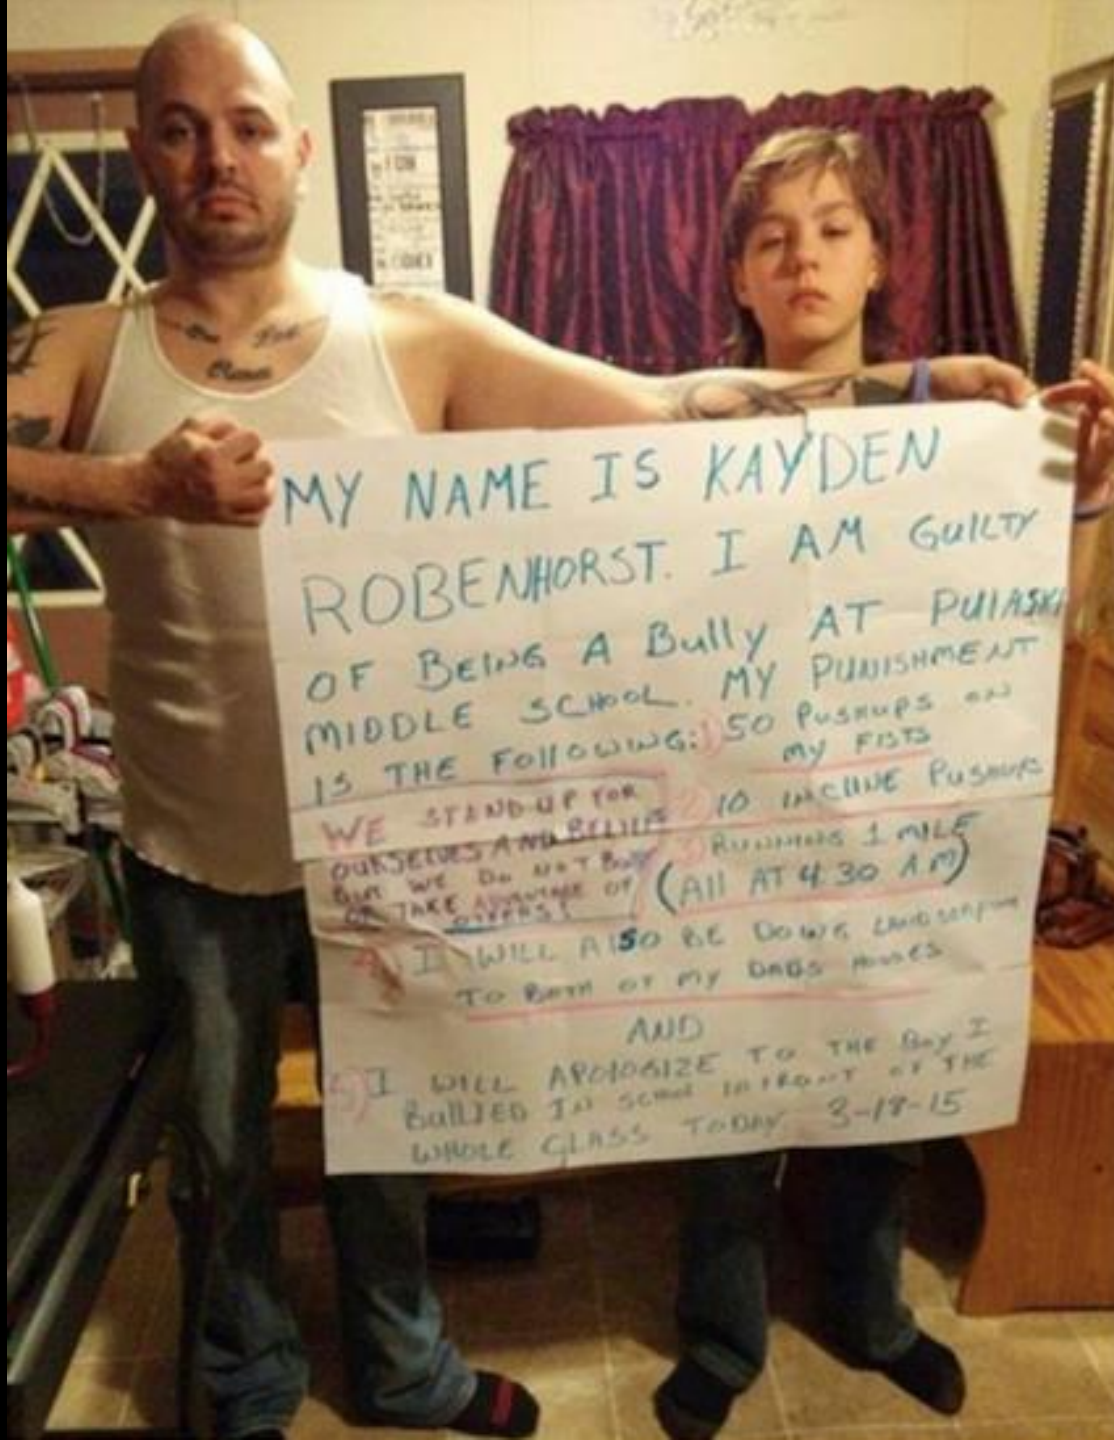 MY NAME IS KAYDEN
ROBENHORST. I AM GUILTY
OF BEING A Bully AT PUlASKI
MIDDLE SCHOOL. MY PUNISHMENT
IS THE FOllOWING: 1) 50 PUSHUPS ON
MY FISTS
WE STAND UP FOR
OURSELVES AND BELIEFS
BUT WE DO NOT BUlly
OR TAKE ADVANTAGE OF
OTHERS!
2) 10 INCLINE PUSHUPS
3) RUNNING 1 MILE
(All AT 4:30 AM)
4) I WILL AlSO BE DOING LANDSCAPING
TO BOTH OF MY DADS HOUSES
AND
5) I WILL APOlOGIZE TO THE BOY I
BullIED IN SCHOOL INFRONT OF THE
WHOLE CLASS TODAY. 3-18-15